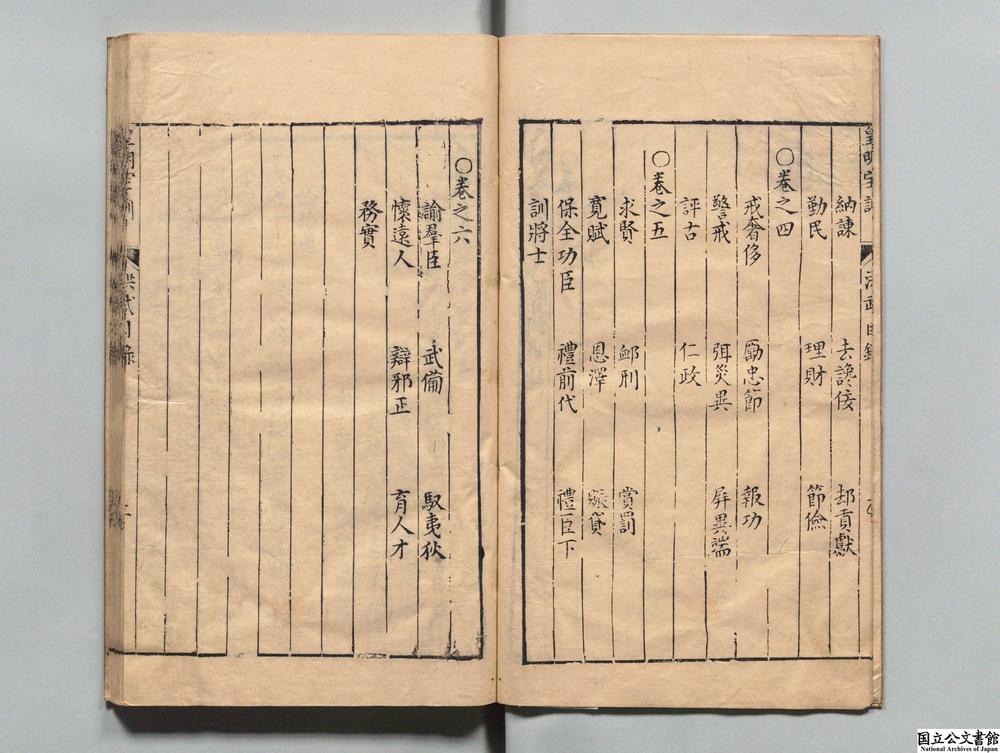 皇明宝訓 洪武目錄
納諫 去讒佞 却貢獻
勤民 理財 節儉
○卷之四
戒奢侈 勵忠節 報功
警戒 弭災異 屏異端
評古 仁政
○卷之五
求賢 䘏刑 賞罰
寬賦 恩澤 賑貸
保全功臣 禮前代 禮臣下
訓將士
○卷之六
諭羣臣 武備 馭夷狄
懷遠人 辯邪正 育人才
務實
洪武目錄 二
国立公文書館
National Archives of Japan